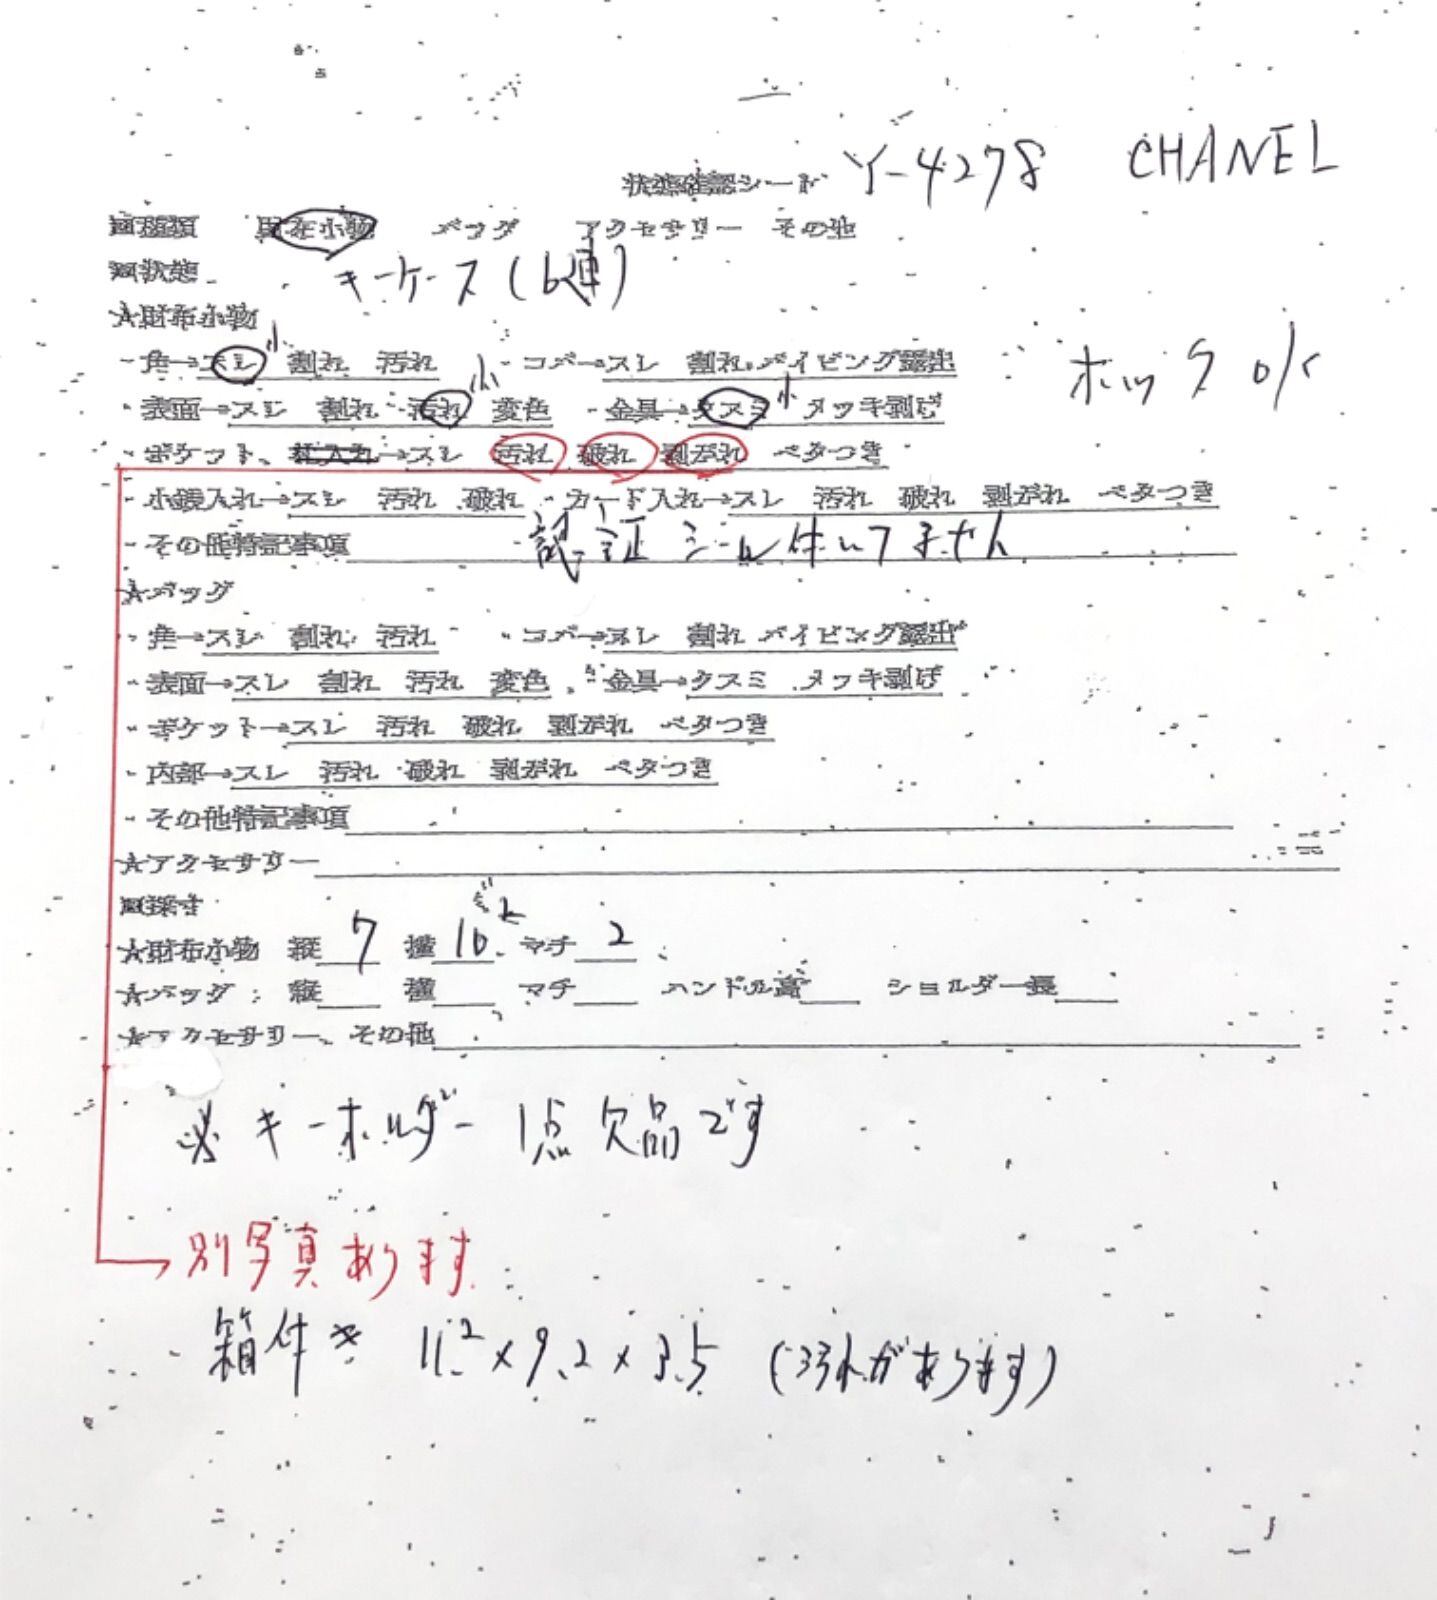 状態確認シート Y-4278 CHANEL
■種類 財布小物 バッグ アクセサリー その他
■状態 キーケース(6連)
★財布小物
・角→スレ 小 割れ 汚れ ・コバ→スレ 割れ パイピング露出 ホック OK
・表面→スレ 割れ 汚れ 小 変色 ・金具→クスミ 小 メッキ剥げ
・ポケット、札入れ→スレ 汚れ 破れ 剥がれ ベタつき
・小銭入れ→スレ 汚れ 破れ ・カード入れ→スレ 汚れ 破れ 剥がれ ベタつき
・その他特記事項 認証シール付いてません
★バッグ
・角→スレ 割れ 汚れ ・コバ→スレ 割れ パイピング露出
・表面→スレ 割れ 汚れ 変色 ・金具→クスミ メッキ剥げ
・ポケット→スレ 汚れ 破れ 剥がれ ベタつき
・内部→スレ 汚れ 破れ 剥がれ ベタつき
・その他特記事項
★アクセサリー
■採寸
★財布小物 縦 7 横 10. マチ 2
★バッグ 縦 横 マチ ハンドル高 ショルダー長
★アクセサリー、その他
※ キーホルダー 1点 欠品です
別写真あります
箱付き 11.2×9.2×3.5 (汚れがあります)